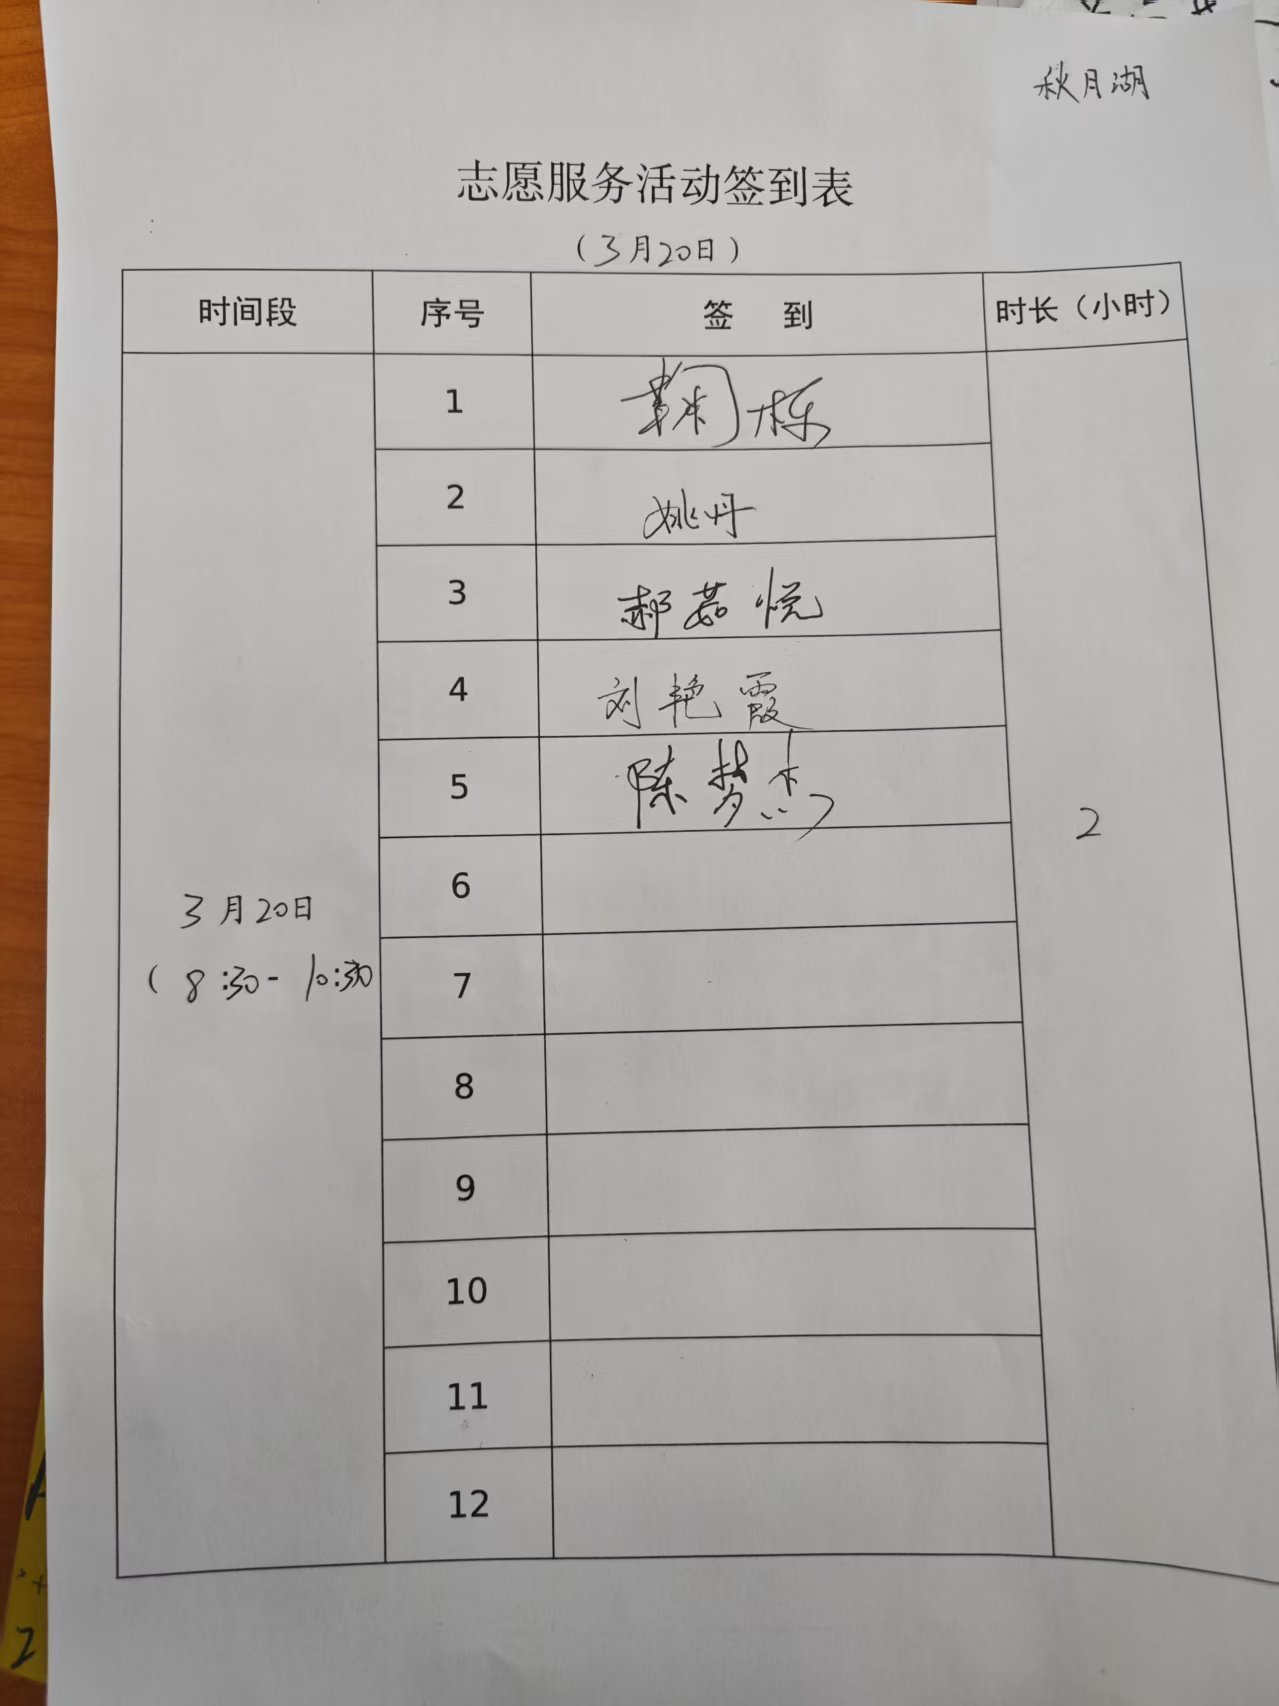 秋月湖
志愿服务活动签到表
（3月20日）
时间段 序号 签 到 时长（小时）
1 鞠栋
2 姚丹
3 郝茹悦
4 刘艳霞
5 陈梦杰
6
2
3月20日
（8:30-10:30
7
8
9
10
11
12